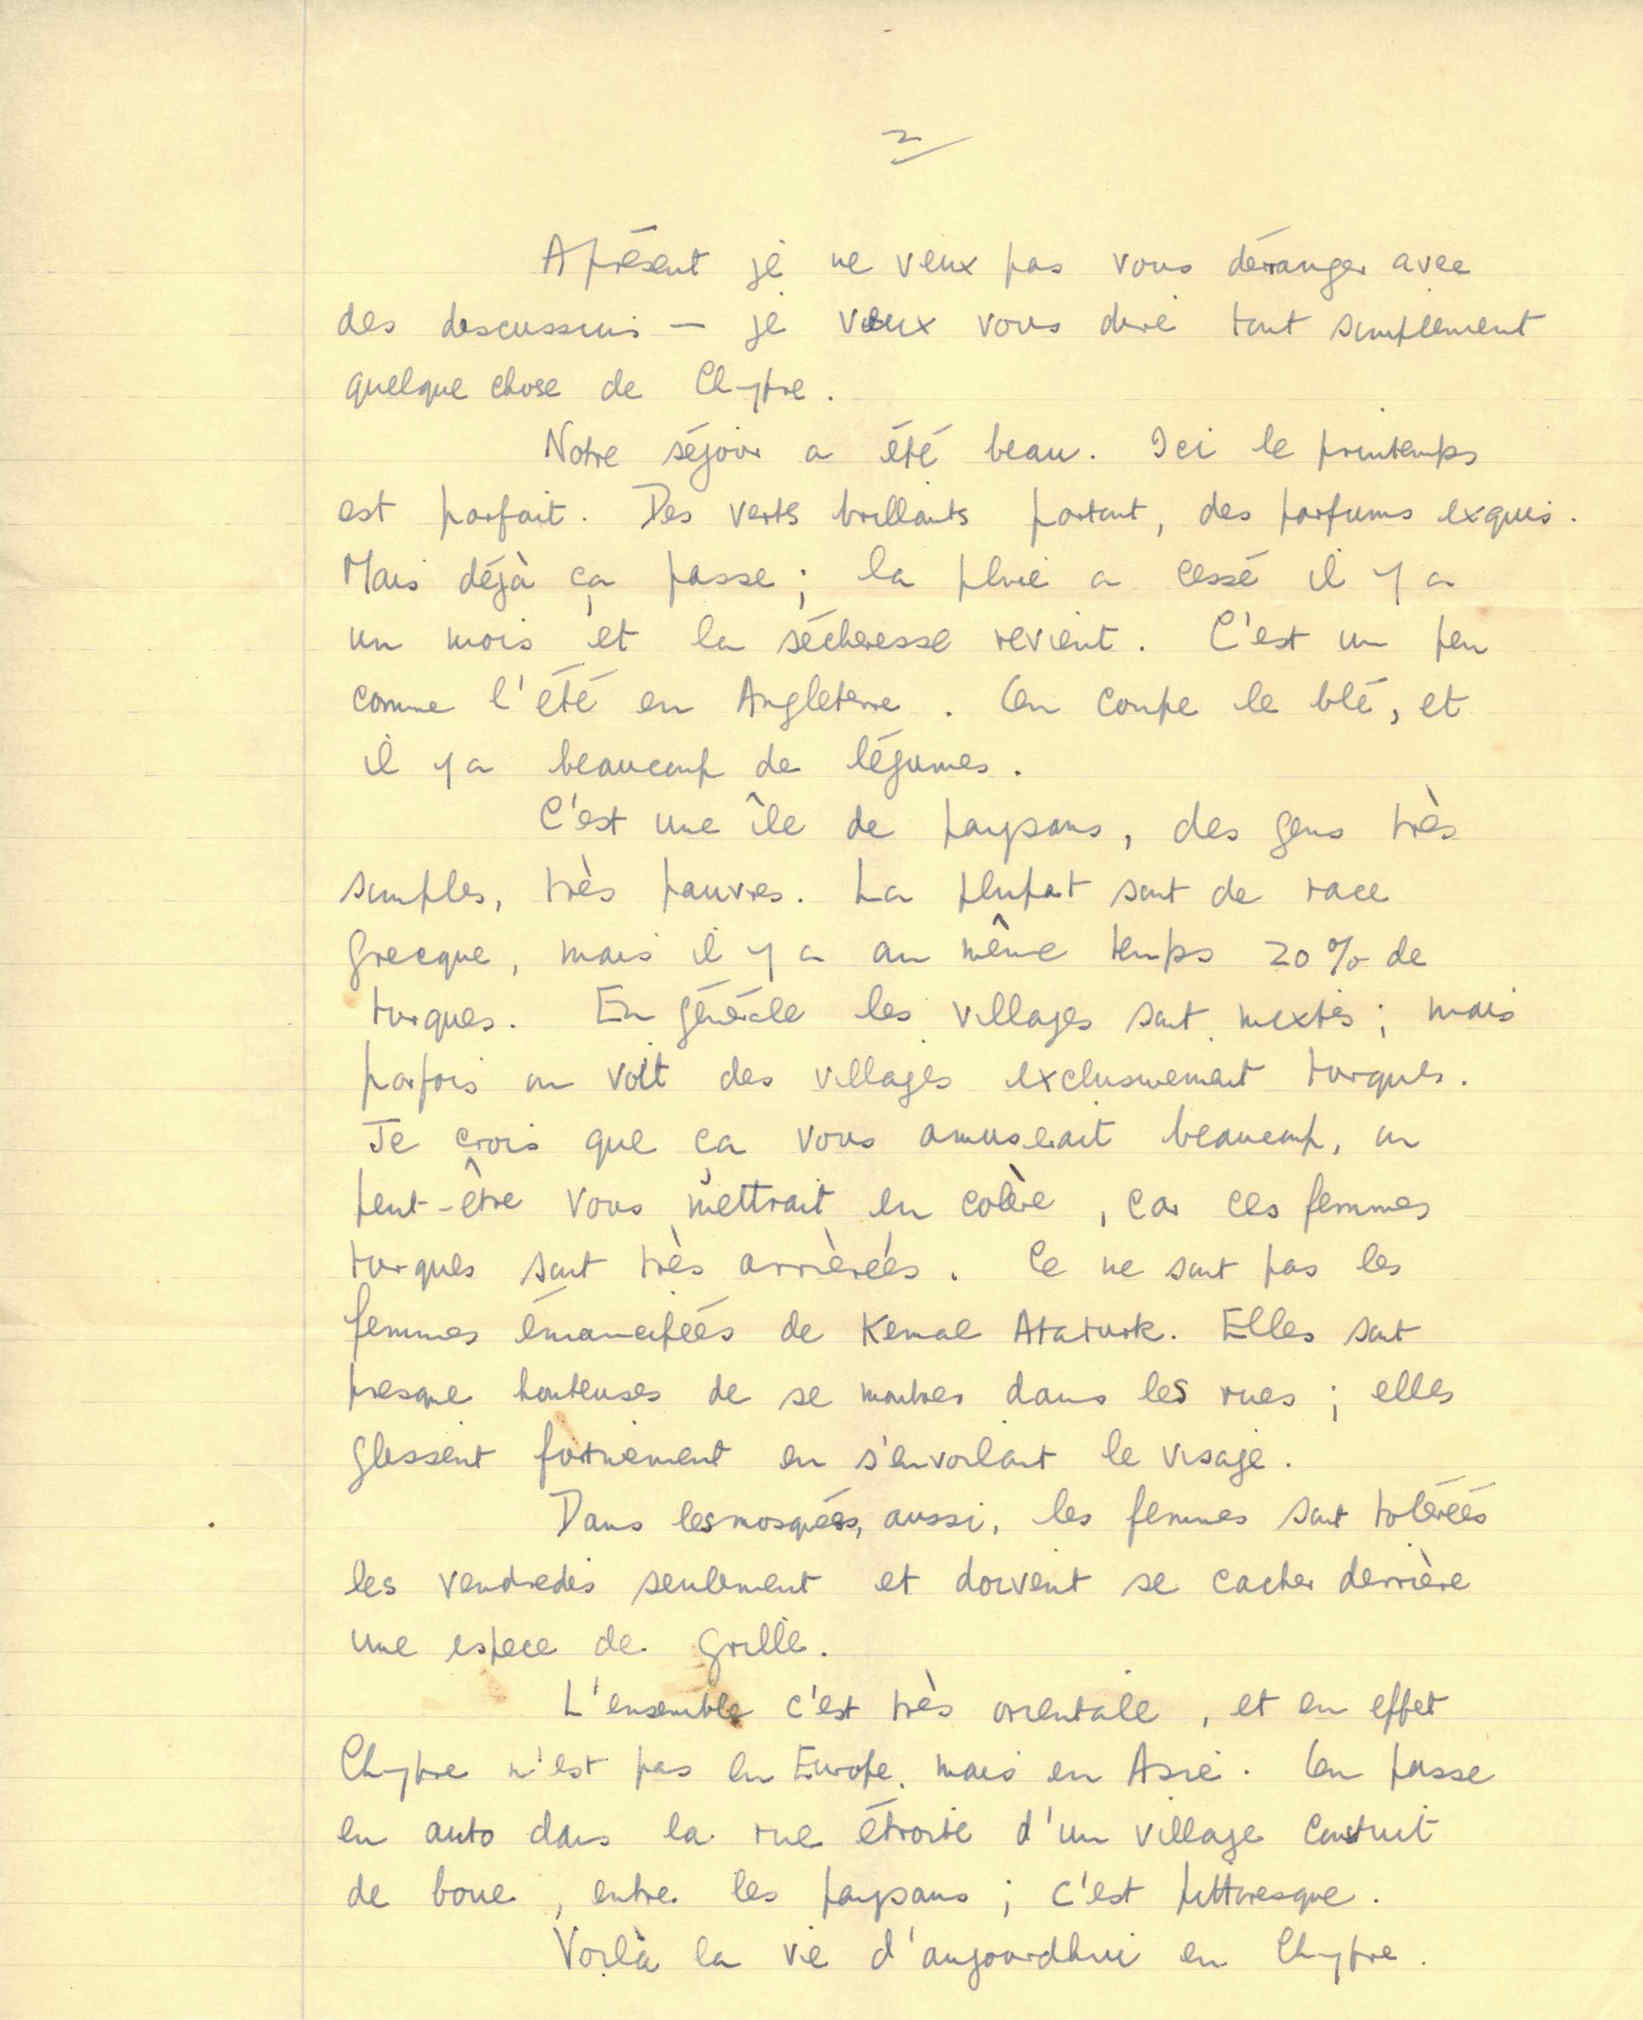 2
A présent je ne veux pas vous dérranger avec
des discussions — je veux vous dire tout simplement
quelque chose de Chypre.
Notre séjour a été beau. Ici le printemps
est parfait. Des verts brillants partout, des parfums exquis.
Mais déjà ça passe; la pluie a cessé il y a
un mois et la sécheresse revient. C'est un peu
comme l'été en Angleterre. On coupe le blé, et
il y a beaucoup de légumes.
C'est une île de paysans, des gens très
simples, très pauvres. La plupart sont de race
grecque, mais il y a au même temps 20% de
turques. En générale les villages sont mixtes; mais
parfois on voit des villages exclusivement turques.
Je crois que ça vous amuserait beaucoup, ou
peut-être vous mettrait en colère, car ces femmes
turques sont très arrièrées. Ce ne sont pas les
femmes émancipées de Kemal Ataturk. Elles sont
presque honteuses de se montrer dans les rues; elles
glissent furtivement en s'envoilant le visage.
Dans les mosquées, aussi, les femmes sont tolérées
les vendredis seulement et doivent se cacher derrière
une espece de grille.
L'ensemble c'est très orientale, et en effet
Chypre n'est pas en Europe, mais en Asie. On passe
en auto dans la rue étroite d'un village construit
de boue, entre les paysans; c'est pittoresque.
Voilà la vie d'aujourdhui en Chypre.